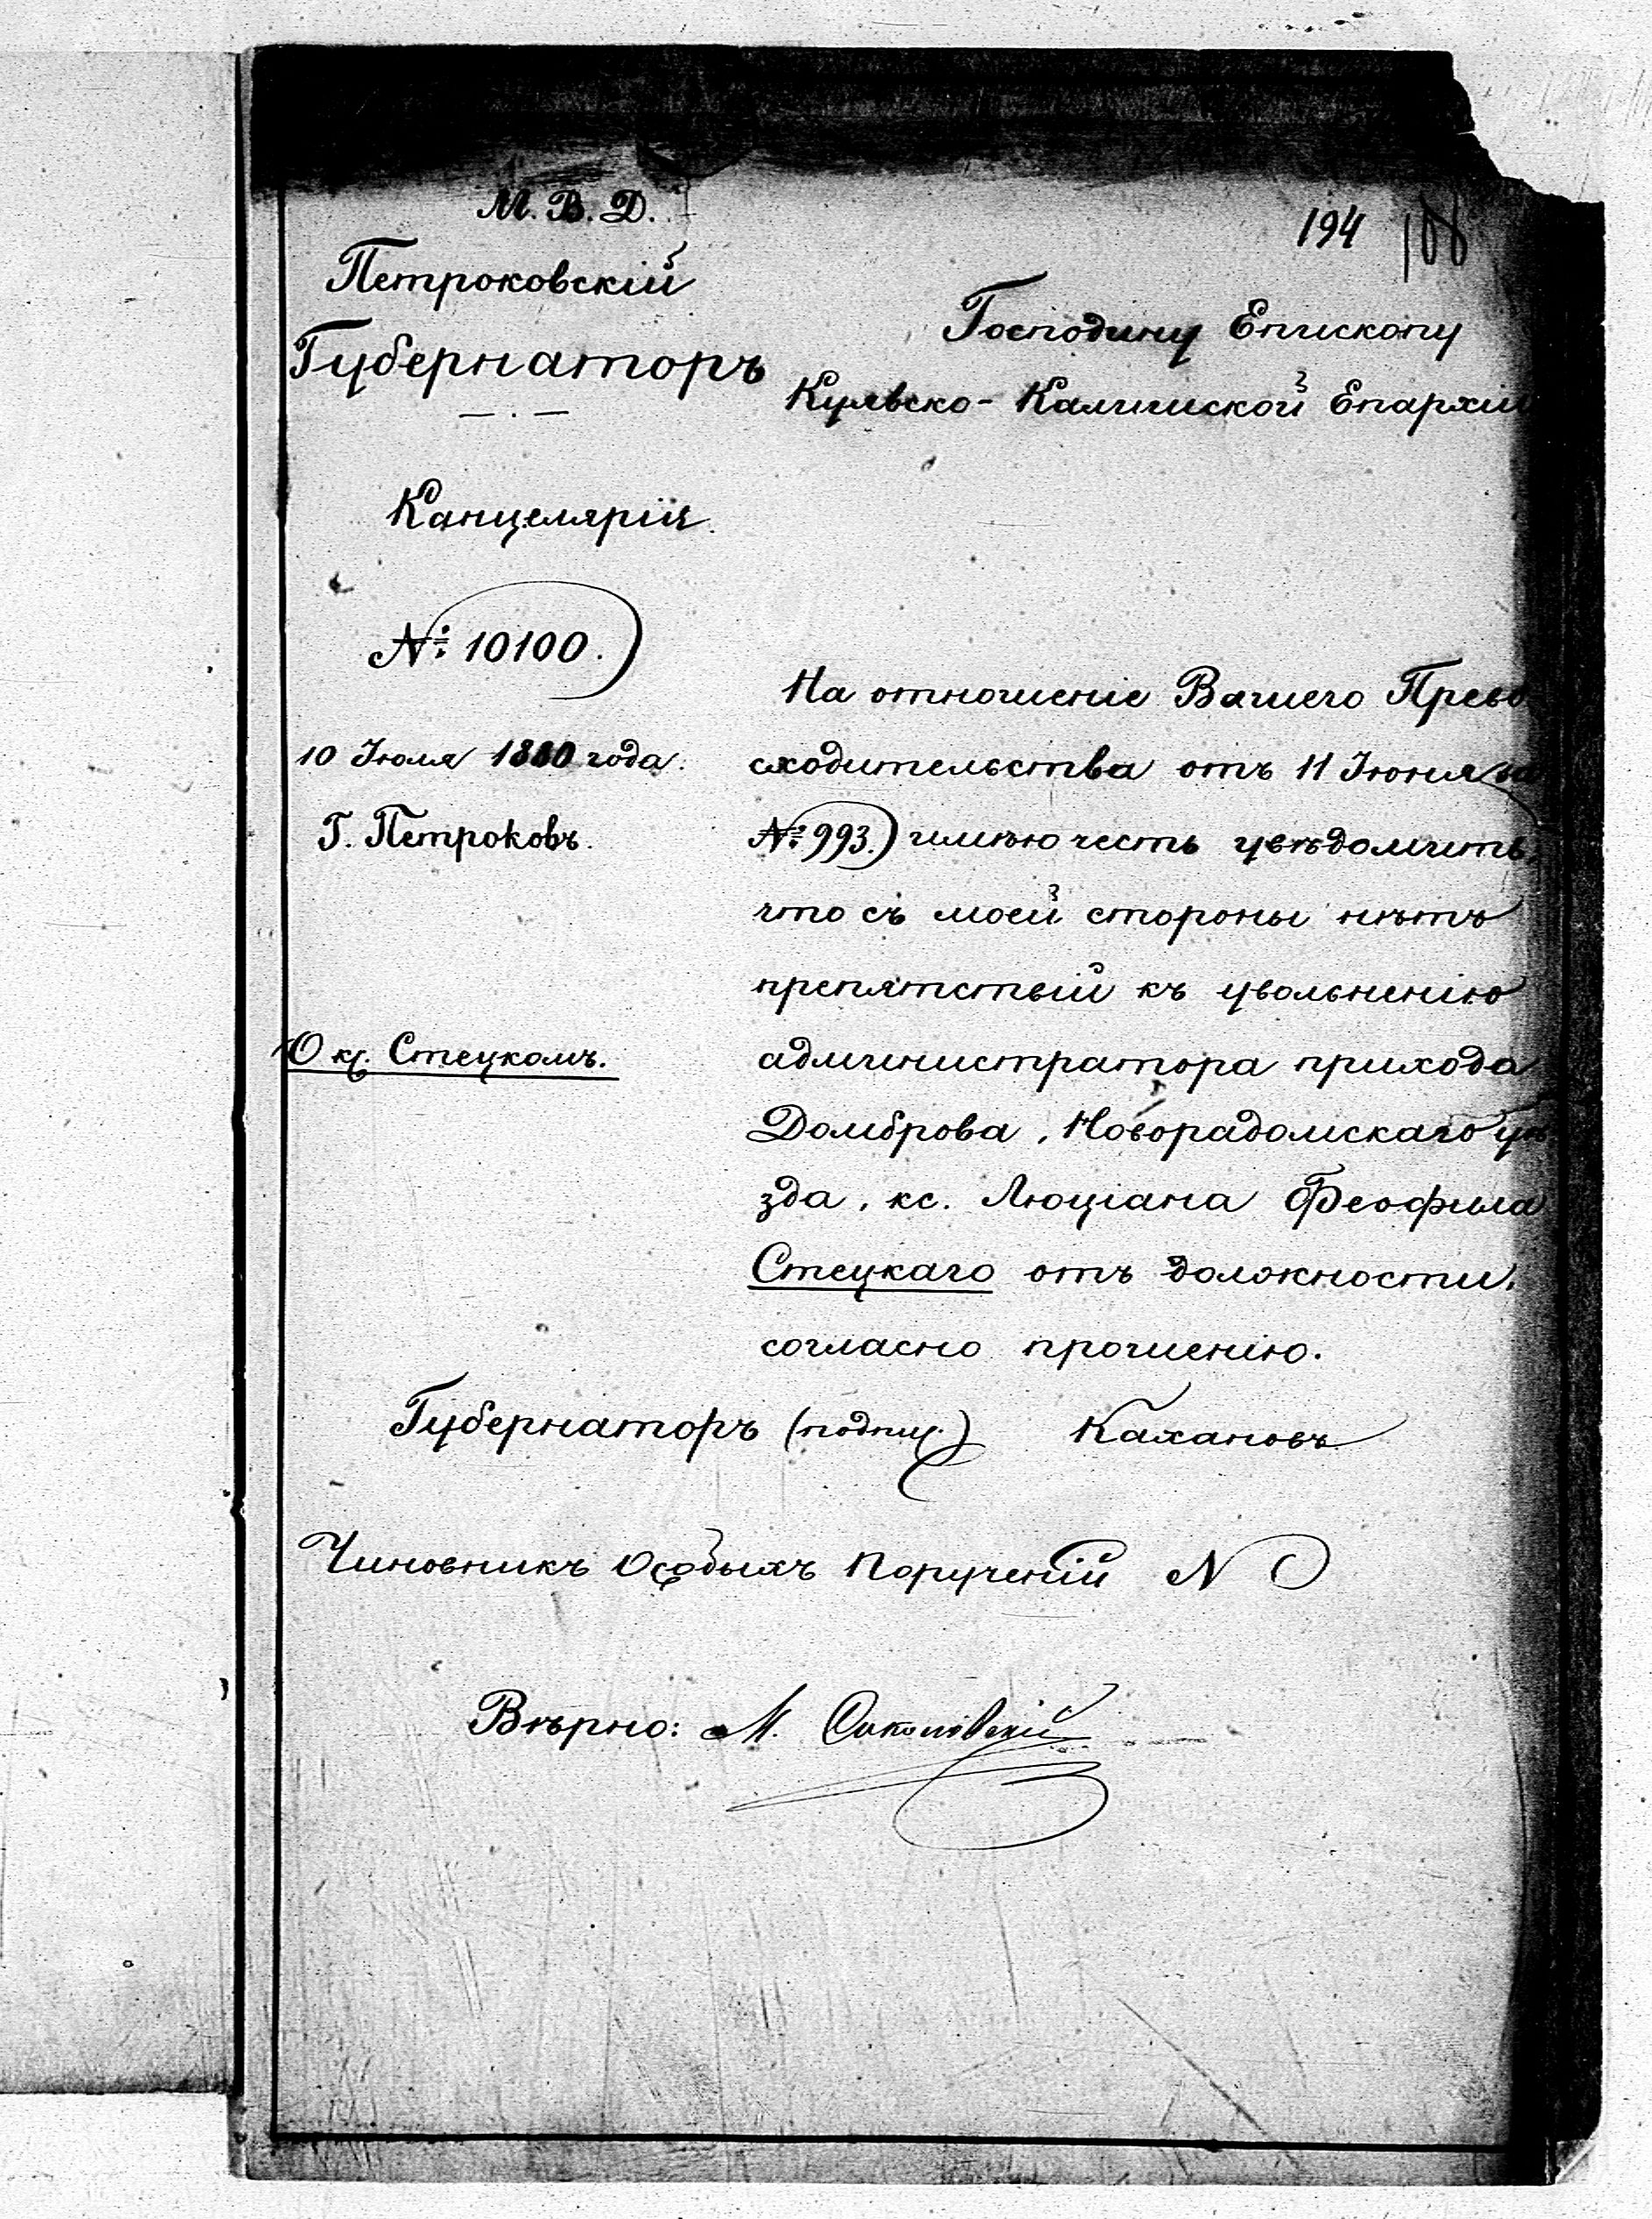 М. В. Д.
Петроковскій
Губернаторъ
Канцелярія.
№ 10100.
10 Іюля 1880 года.
Г. Петроковъ.
О кс. Стецкомъ.
194
Господину Епископу
Куявско-Калишской Епархіи
На отношеніе Вашего Прево
сходительства отъ 11 Іюня за
№ 993. имѣю честь увѣдомить,
что съ моей стороны нѣтъ
препятствій къ увольненію
администратора прихода
Домброва, Новорадомскаго уѣ
зда, кс. Люціана Феофила
Стецкаго отъ должности,
согласно прошенію.
Губернаторъ (подпис.) Кахановъ
Чиновникъ Особыхъ Порученій N
Вѣрно: М. Соколовскій